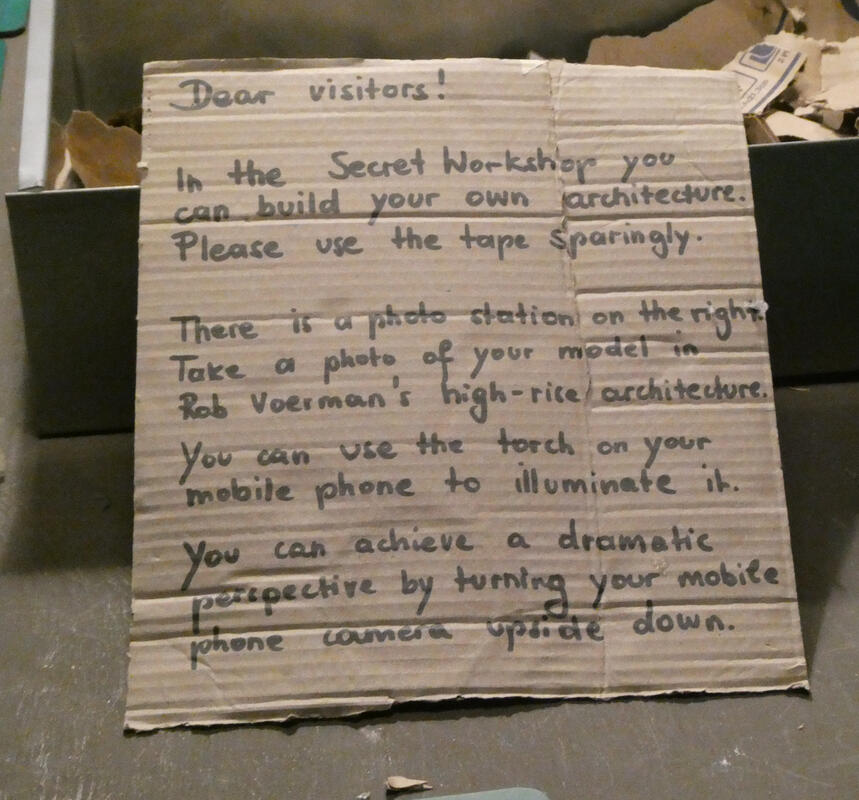 Dear visitors!
In the Secret Workshop you
can build your own architecture.
Please use the tape sparingly.
There is a photo station on the right.
Take a photo of your model in
Rob Voerman's high-rise architecture.
You can use the torch on your
mobile phone to illuminate it.
You can achieve a dramatic
perspective by turning your mobile
phone camera upside down.